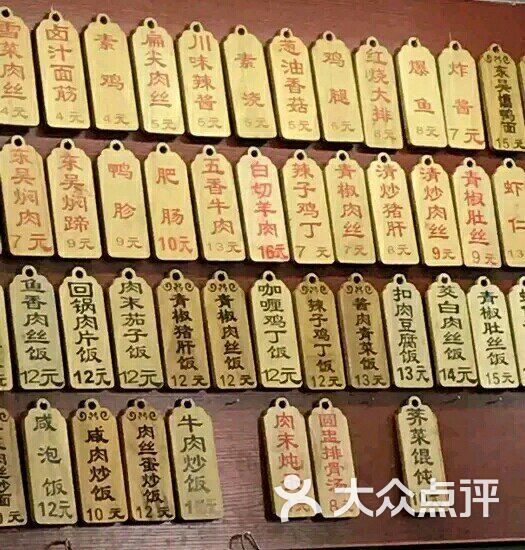 雪菜肉丝 4元
卤汁面筋 4元
素鸡 4元
扁尖肉丝 5元
川味辣酱 5元
素浇 5元
葱油香菇 6元
鸡腿 6元
红烧大排 8元
爆鱼 8元
炸酱 7元
东吴焖鸭面 15元
东吴焖肉 7元
东吴焖蹄 9元
鸭胗 9元
肥肠 10元
五香牛肉 13元
白切羊肉 16元
辣子鸡丁 7元
青椒肉丝 7元
清炒猪肝 8元
清炒肉丝 9元
青椒肚丝 9元
虾仁
鱼香肉丝饭 12元
回锅肉片饭 12元
肉末茄子饭 12元
青椒猪肝饭 12元
青椒肉丝饭 12元
咖喱鸡丁饭 12元
辣子鸡丁饭 12元
酱肉青菜饭 13元
扣肉豆腐饭 13元
茭白肉丝饭 14元
青椒肚丝饭 15元
咸泡饭 12元
咸肉炒饭 10元
肉丝蛋炒饭 12元
牛肉炒饭
肉末炖
排骨汤
荠菜馄饨
大众点评